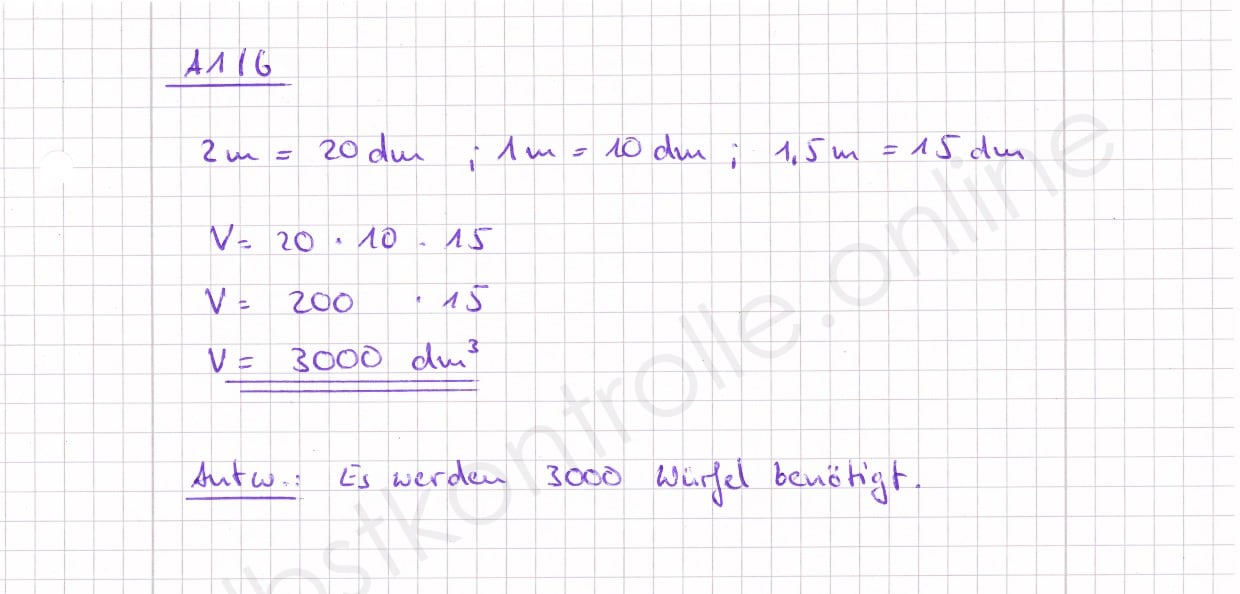 A1/6
2m = 20 dm ; 1m = 10 dm ; 1,5m = 15 dm
V = 20 · 10 · 15
V = 200 · 15
V = 3000 dm³
Antw.: Es werden 3000 Würfel benötigt.
lbstkontrolle.online